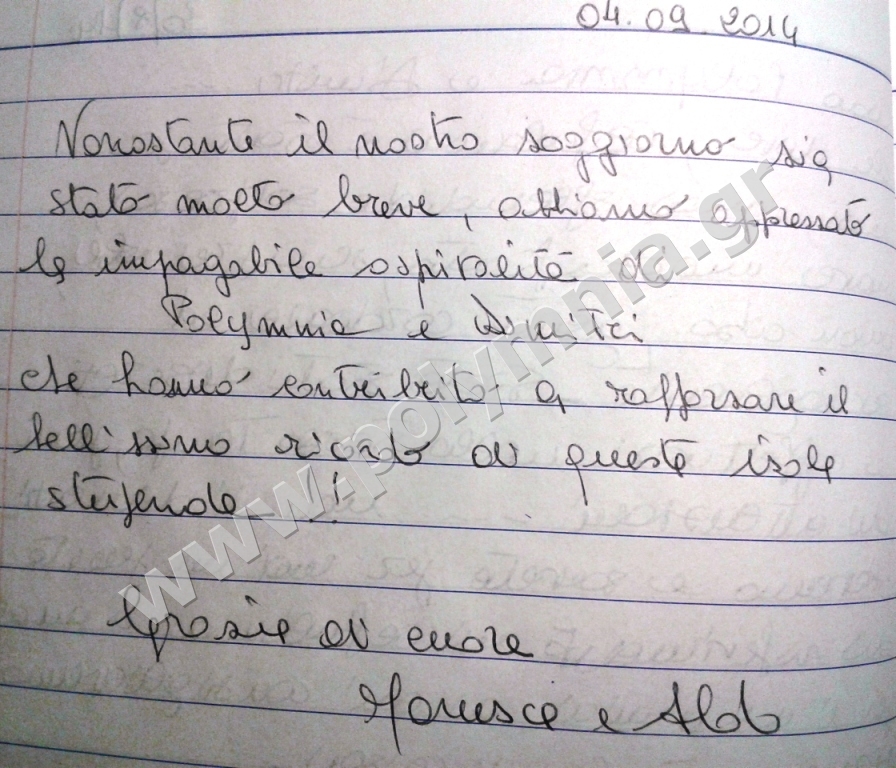 04.09.2014
Nonostante il nostro soggiorno sia
stato molto breve, abbiamo apprezzato
la impagabile ospitalità di
Polymnia e Dimitri
che hanno contribuito a rafforzare il
bellissimo ricordo di queste isole
stupende !
Grazie di cuore
e Aldo
www.polymnia.gr